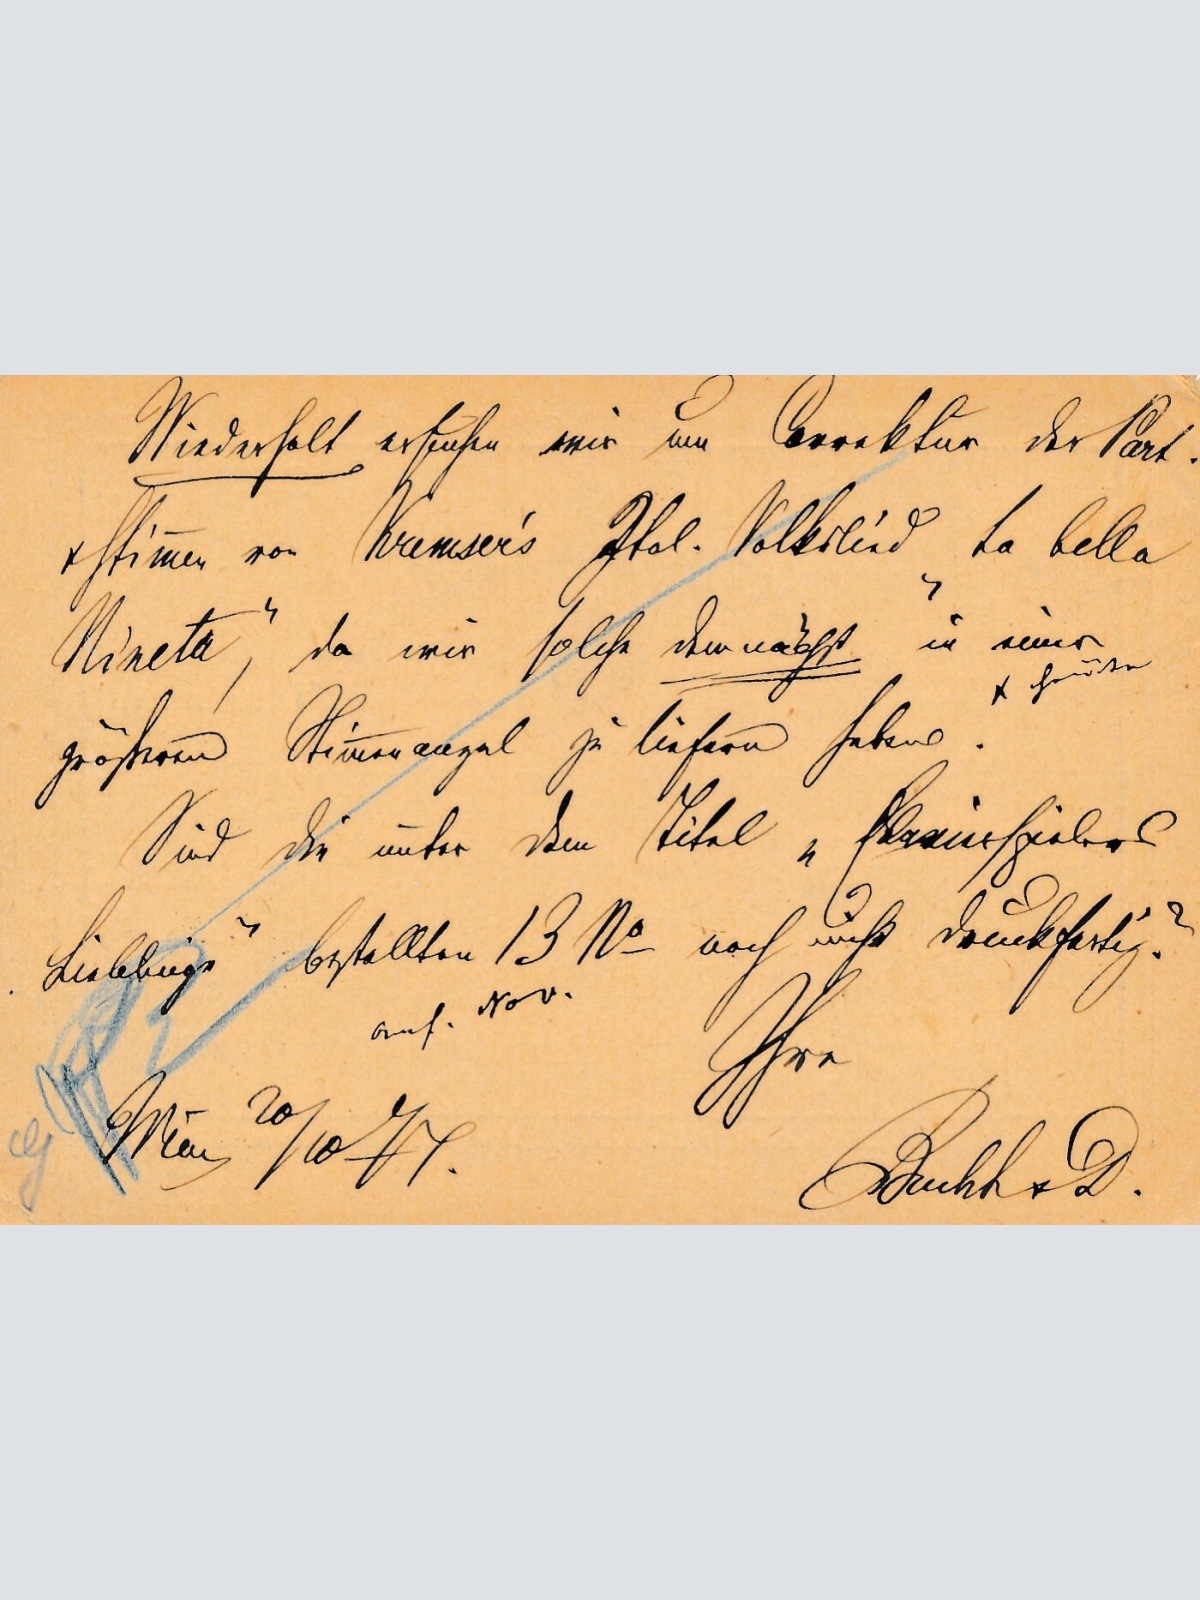 Wiederholt ersuchen wir um Correktur der Part.
& Stimmen von Kremser's Ital. Volkslied „La bella
Nineta", da wir solche demnächst in einer
größeren Stimmenanzal zu liefern haben.
+ heute
Sind die unter dem Titel „Clavierspielers
Lieblinge" bestellten 13 No noch nicht druckfertig?
anf. Nov.
Ihre
Wien 20/10
Buchh & D.